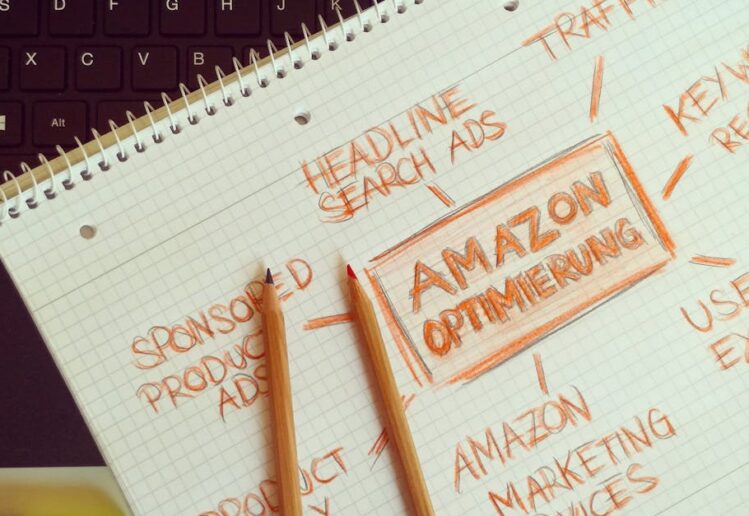 S D F G H J K
X C V B
Alt
TRAFFI
KEYW
RE
HEADLINE
SEARCH ADS
AMAZON
OPTIMIERUNG
SPONSORED
PRODUCT
ADS
USE
EX
AMAZON
MARKETING
VICES
PRODUCT
Y